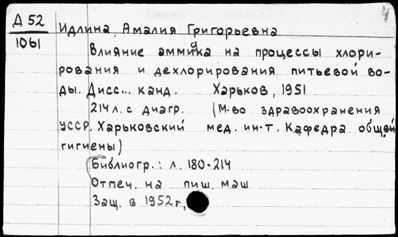 Д 52
1061
Идлина, Амалия Григорьевна
Влияние аммиака на процессы хлори-
рования и дехлорирования питьевой во-
ды. Дисс... канд. Харьков, 1951
214 л. с диагр. (М-во здравоохранения
УССР. Харьковский мед. ин-т. Кафедра общей
гигиены)
(Библиогр.: л. 180-214
Отпеч. на пиш. маш
Защ. в 1952 г.